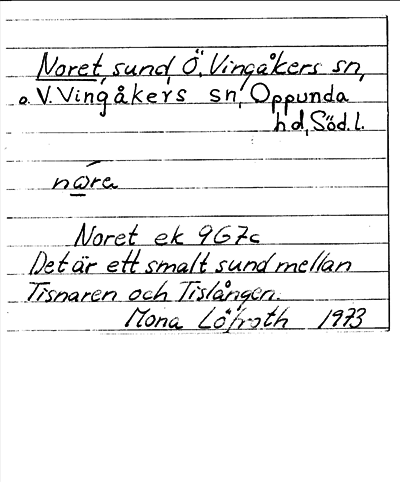 Noret, sund, Ö. Vingåkers sn,
o. V. Vingåkers sn, Oppunda
hd, Söd. l.
nⱺ́ra
Noret ek 9G7c
Det är ett smalt sund mellan
Tisnaren och Tislången.
Mona Löfroth 1973